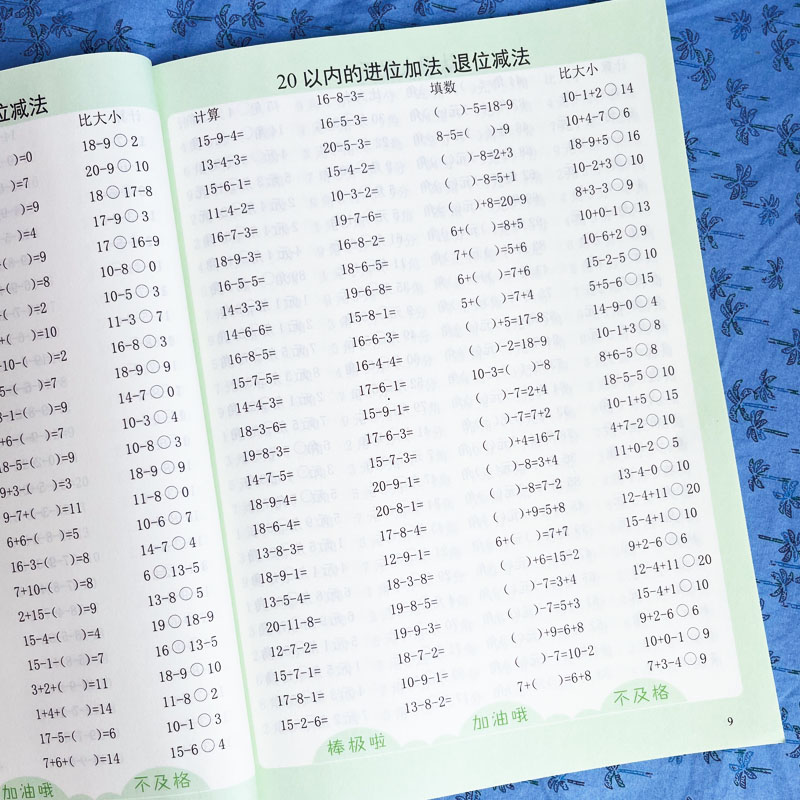 位减法
比大小
)=0
18-9○2
)=7
20-9○10
)=9
18○17-8
)=4
17-9○3
)=9
17○16-9
)=8
10-8○0
)=2
10-5○3
)=10
11-3○7
10-( )=2
16-8○3
5-( )=7
18-9○9
3-1-( )=9
14-7○0
+6-( )=7
10-3○4
18-5-( )=9
10-8○3
9+3-( )=3
18-9○9
9-7+( )=11
11-8○0
6+6-( )=5
10-6○7
16-3-( )=8
14-7○4
7+10-( )=8
6○13-5
2+15-( )=9
13-8○5
15-4-( )=4
19○18-9
15-1-( )=7
16○13-5
3+2+( )=11
18-9○10
1+4+( )=14
11-8○2
17-5-( )=6
10-1○3
7+6+( )=14
15-6○4
加油哦
不及格
20以内的进位加法、退位减法
计算
15-9-4=
13-4-3=
15-6-1=
11-4-2=
16-7-3=
18-9-3=
16-5-5=
14-3-3=
14-6-6=
16-8-5=
15-7-5=
14-4-3=
18-3-6=
19-8-3=
14-7-5=
18-9-4=
18-6-4=
13-8-3=
18-9-1=
13-5-4=
20-11-8=
12-7-2=
15-7-1=
17-8-1=
15-2-6=
16-8-3=
16-5-3=
20-5-3=
15-4-2=
10-3-2=
19-7-6=
16-8-2=
18-6-5=
19-6-8=
15-8-1=
16-6-3=
16-4-4=
17-6-1=
15-9-1=
17-6-3=
15-7-3=
20-9-1=
20-8-1=
17-8-4=
12-9-1=
18-3-8=
19-8-5=
19-9-3=
18-7-2=
10-9-1=
13-8-2=
填数
( )-5=18-9
8-5=( )-9
( )-8=2+3
( )-8=5+1
( )+8=20-9
6+( )=8+5
7+( )=5+6
6+( )=7+6
5+( )=7+4
( )+5=17-8
( )-2=18-9
10-3=( )-8
( )-7=2+4
( )-7=7+2
( )+4=16-7
( )-8=3+4
( )-8=7-2
( )+9=5+8
6+( )=7+7
( )+6=15-2
( )-7=3+4
( )-7=5+3
( )+9=6+8
( )-7=10-2
7+( )=6+8
比大小
10-1+2○14
10+4-7○6
18-9+5○16
10-2+3○10
8+3-3○9
10+0-1○13
10-6+2○9
15-2-5○10
5+5-6○15
14-9-0○4
10-1+3○8
8+6-5○8
18-5-5○10
10-1+5○15
4+7-2○10
11+0-2○5
13-4-0○10
12-4+11○20
15-4+1○10
9+2-6○6
12-4+11○20
15-4+1○10
9+2-6○6
10+0-1○9
7+3-4○9
棒极啦
加油哦
不及格
9